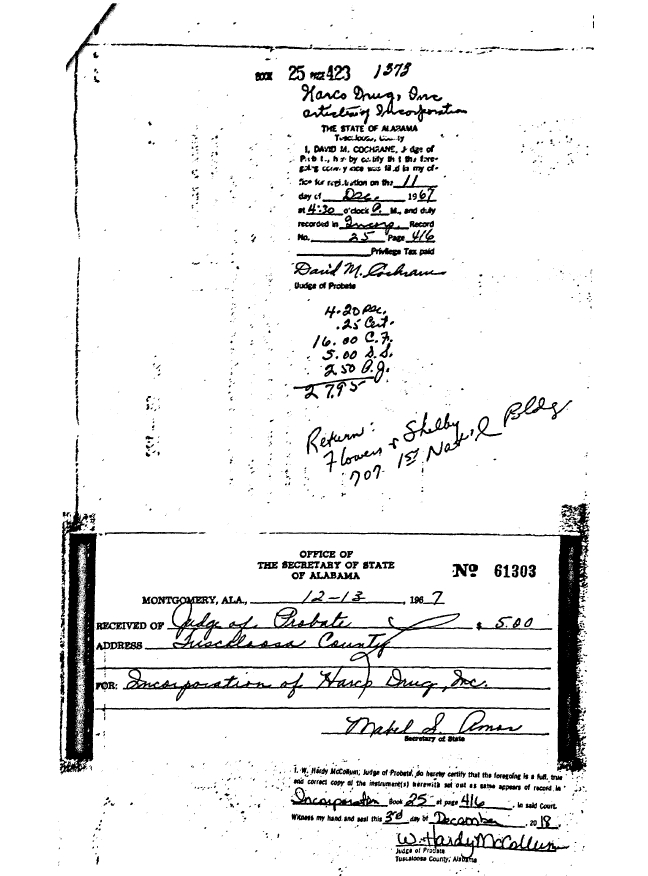 BOOK 25 PAGE 423 1373
Harco Drug, Inc
Articles of Incorporation
THE STATE OF ALABAMA
Tuscaloosa, County
I, DAVID M. COCHRANE, Judge of
Probate, hereby certify that the fore-
going conveyance was filed in my of-
fice for registration on the 11
day of Dec. 1967
at 4:30 o'clock P. M., and duly
recorded in Incorp. Record
No. 25 Page 416
Privilege Tax paid
David M. Cochrane
Judge of Probate
4.20 Rec.
.25 Cert.
16.00 C.F.
5.00 S.S.
2.50 P.J.
27.95
Return:
Flowers & Shelby
707 1st Nat'l Bldg
OFFICE OF
THE SECRETARY OF STATE
OF ALABAMA
No 61303
MONTGOMERY, ALA., 12-13, 1967
RECEIVED OF Judge of Probate $ 5.00
ADDRESS Tuscaloosa County
FOR: Incorporation of Harco Drug, Inc.
Mabel S. Amos
Secretary of State
I, W. Hardy McCollum, Judge of Probate, do hereby certify that the foregoing is a full, true
and correct copy of the instrument(s) herewith set out as same appears of record in
Incorporation Book 25 at page 416, in said Court.
Witness my hand and seal this 3rd day of December, 2018.
W. Hardy McCollum
Judge of Probate
Tuscaloosa County, Alabama